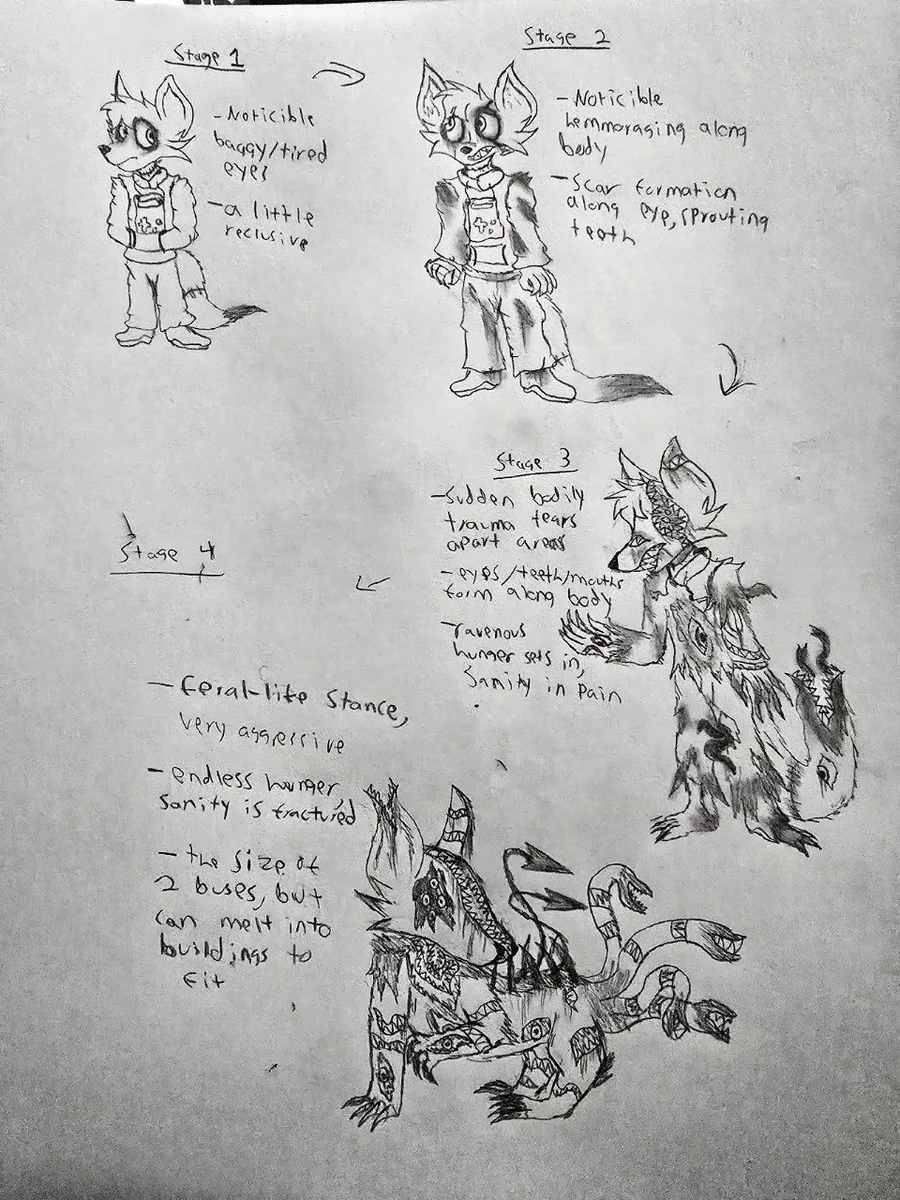 Stage 1
- Noticible
baggy/tired
eyes
- a little
reclusive
Stage 2
- Noticible
hemmoraging along
body
- Scar formation
along eye, sprouting
teeth
Stage 3
- Sudden bodily
trauma tears
apart areas
- eyes/teeth/mouths
form along body
- ravenous
hunger sets in,
Sanity in Pain
Stage 4
- feral-like Stance,
very aggressive
- endless hunger,
sanity is fractured
- the size of
2 buses, but
can melt into
buildings to
fit